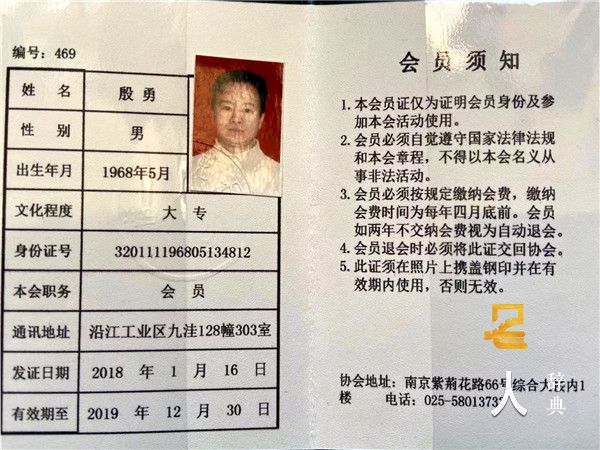 编号：469
姓 名 殷 勇
性 别 男
出生年月 1968年5月
文化程度 大 专
身份证号 320111196805134812
本会职务 会 员
通讯地址 沿江工业区九洼128幢303室
发证日期 2018 年 1 月 16 日
有效期至 2019 年 12 月 30 日
会员须知
1. 本会员证仅为证明会员身份及参
加本会活动使用。
2. 会员必须自觉遵守国家法律法规
和本会章程，不得以本会名义从
事非法活动。
3. 会员必须按规定缴纳会费，缴纳
会费时间为每年四月底前。会员
如两年不交纳会费视为自动退会。
4. 会员退会时必须将此证交回协会。
5. 此证须在照片上携盖钢印并在有
效期内使用，否则无效。
协会地址：南京紫荊花路66号综合大楼内1
楼 电话：025-5801373
人 辞典